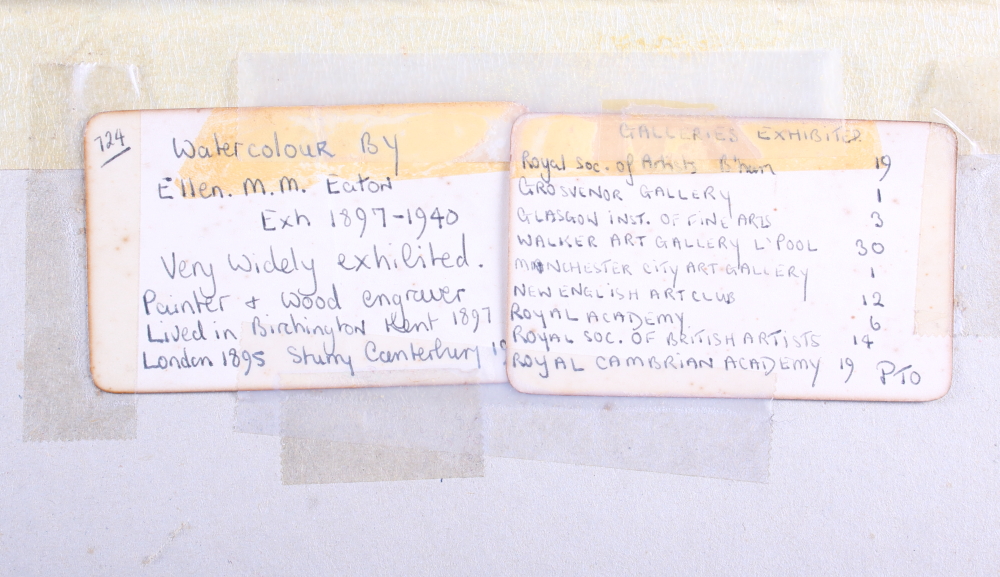 724
Watercolour By
Ellen. M. M. Eaton
Exh 1897-1940
Very Widely exhibited.
Painter & Wood engraver
Lived in Birchington Kent 1897
London 1895 Sturry Canterbury 19
GALLERIES EXHIBITED
Royal Soc. of Artists B'ham 19
GROSVENOR GALLERY 1
GLASGOW INST. OF FINE ARTS 3
WALKER ART GALLERY L'POOL 30
MANCHESTER CITY ART GALLERY 1
NEW ENGLISH ART CLUB 12
ROYAL ACADEMY 6
ROYAL SOC. OF BRITISH ARTISTS 14
ROYAL CAMBRIAN ACADEMY 19 PTO